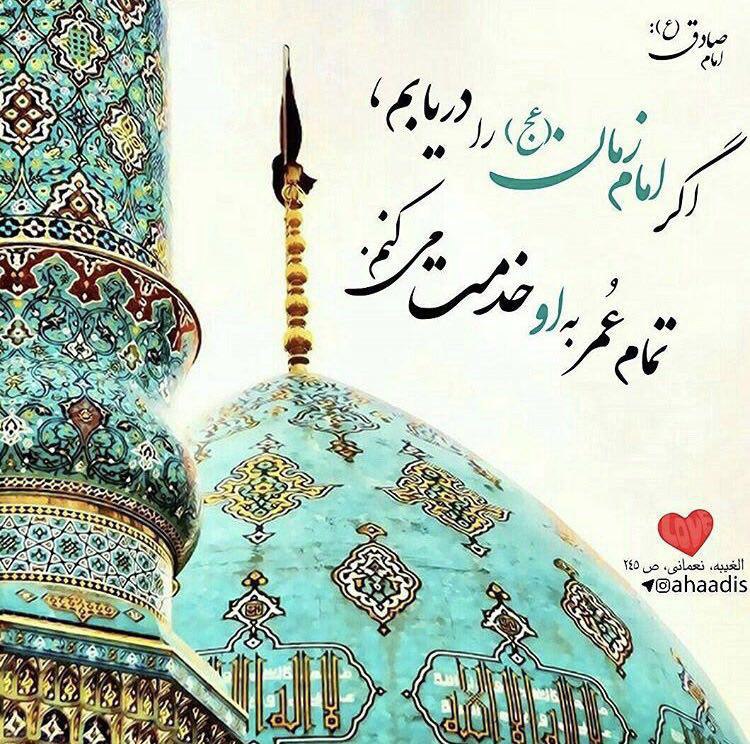 امام صادق (ع):
اگر امام زمان (عج) را دریابم،
تمام عُمر به او خدمت می‌کنم.
LOVE
الغیبه، نعمانی، ص ٢٤٥
@ahaadis
لا اله الا الله